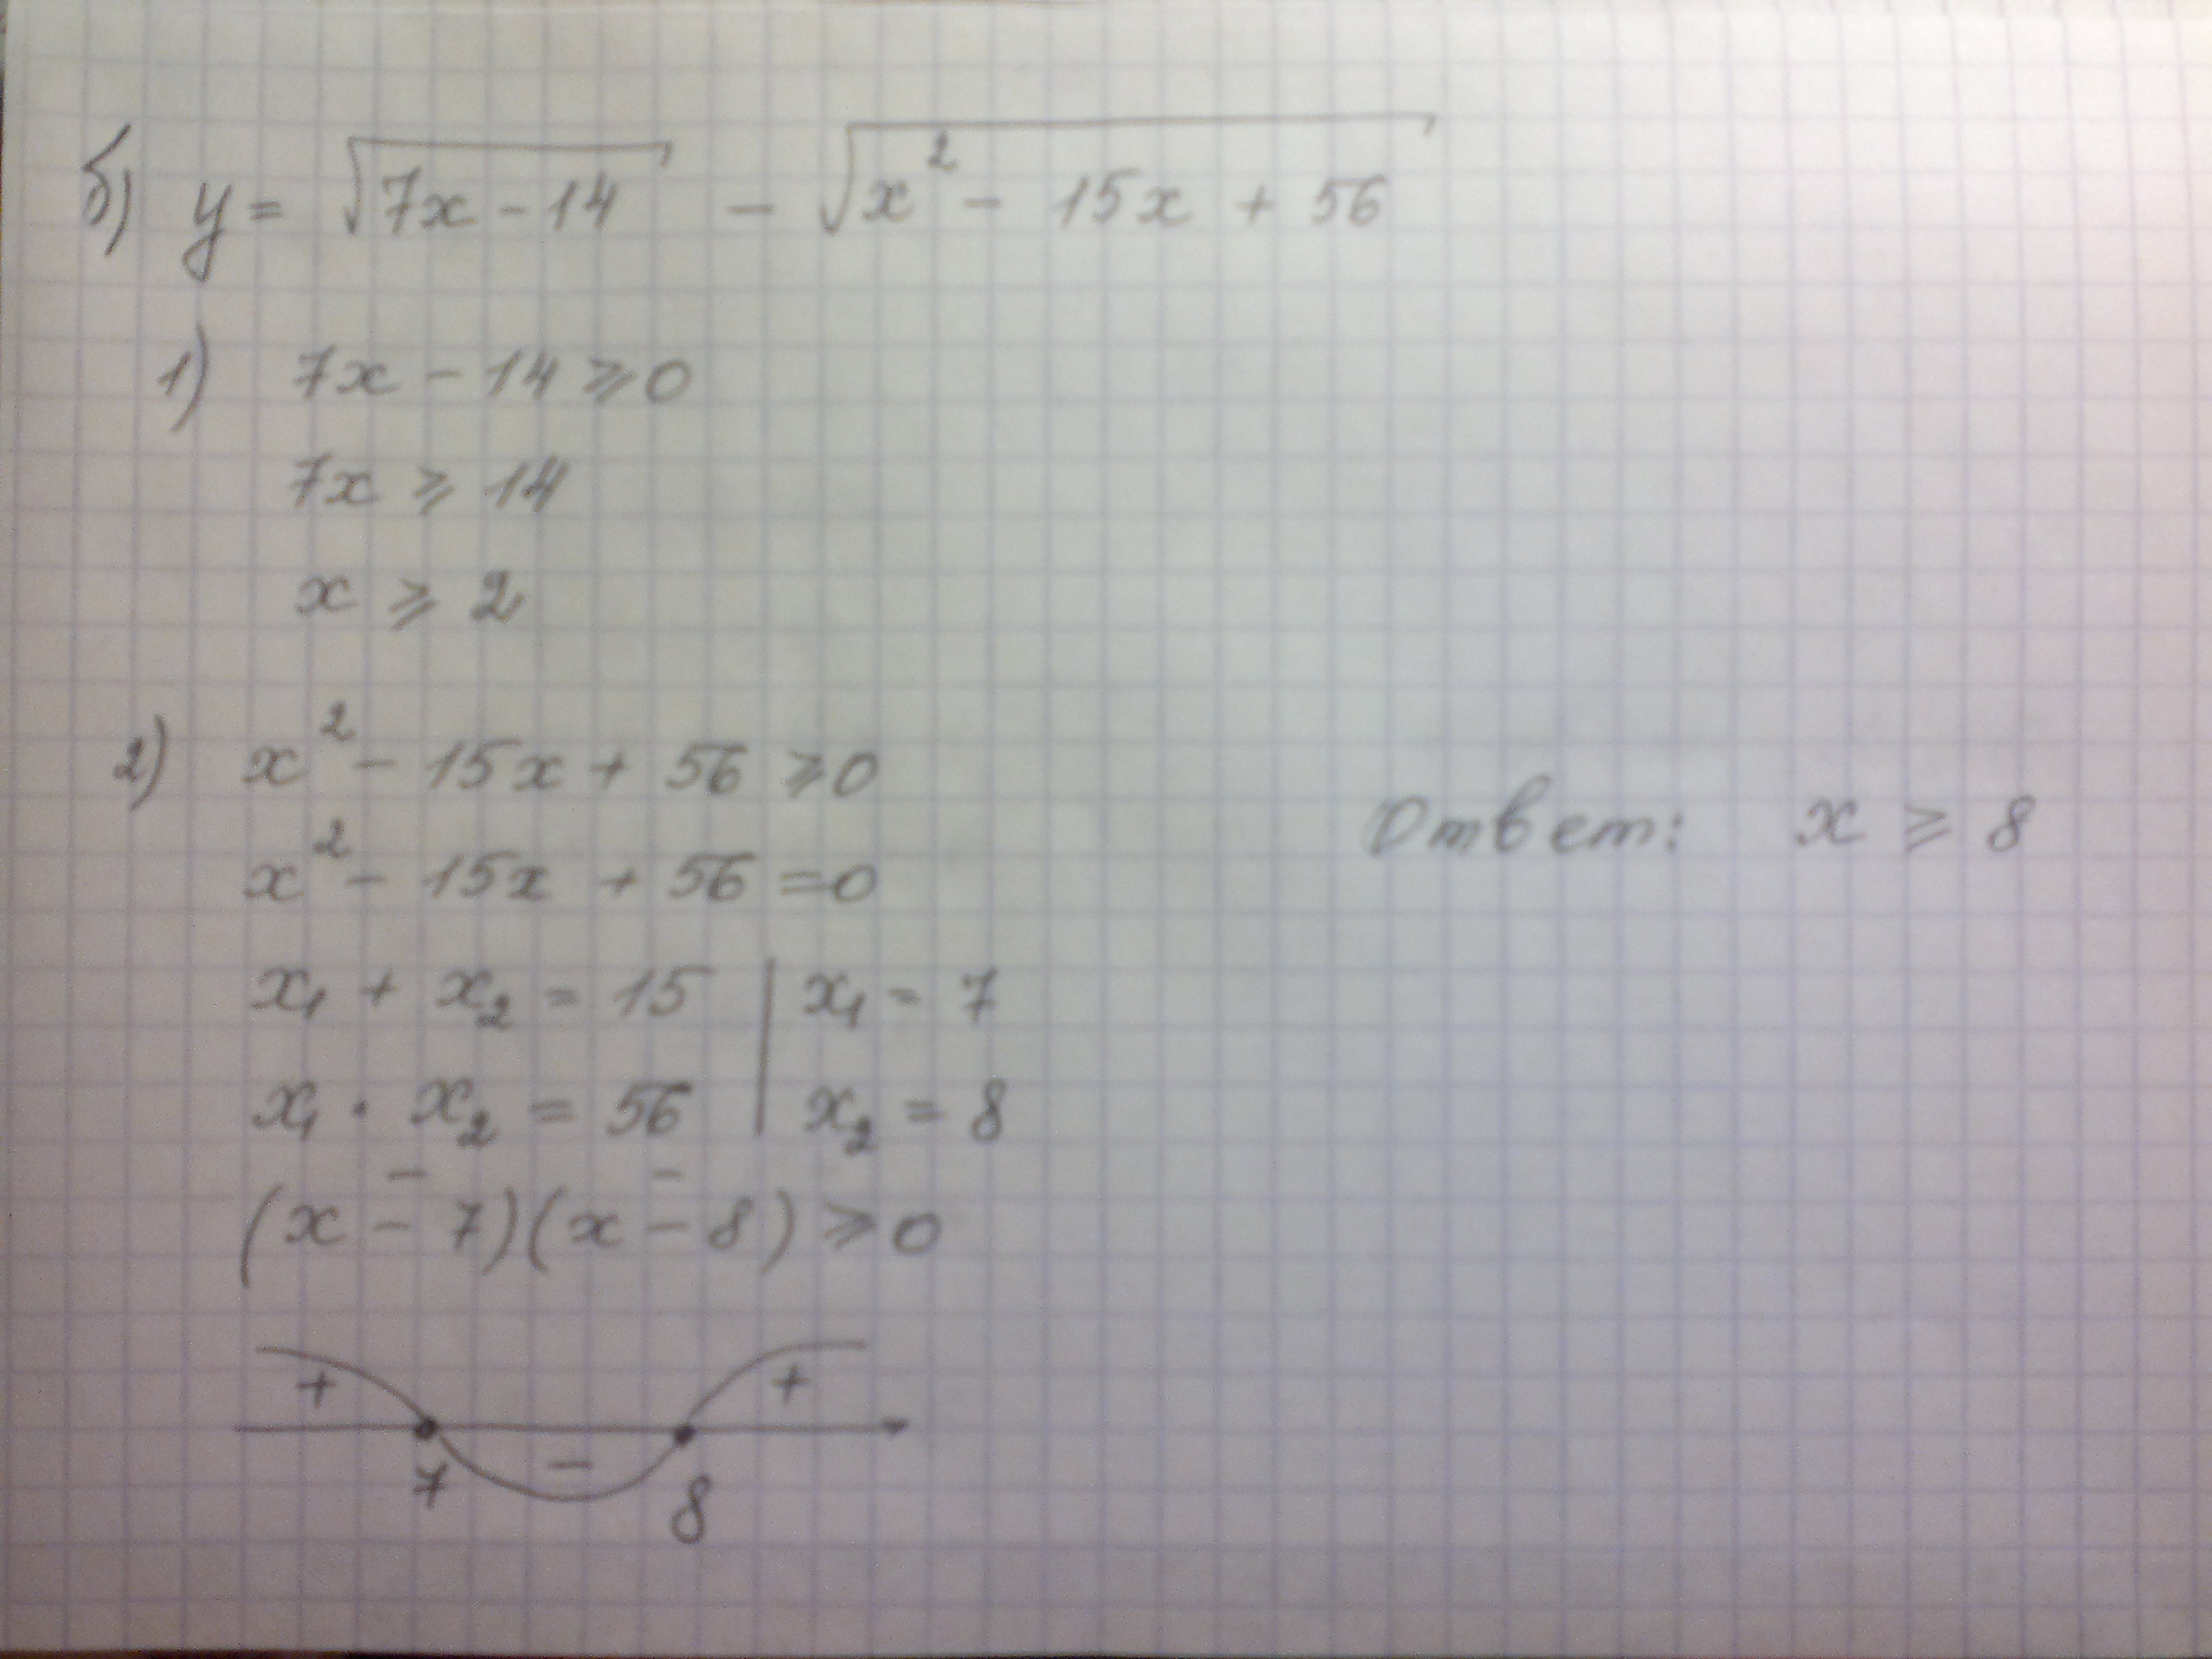 б) y = √(7x - 14) - √(x² - 15x + 56)
1) 7x - 14 ⩾ 0
7x ⩾ 14
x ⩾ 2
2) x² - 15x + 56 ⩾ 0
x² - 15x + 56 = 0
x₁ + x₂ = 15 | x₁ = 7
x₁ · x₂ = 56 | x₂ = 8
(x - 7)(x - 8) ⩾ 0
+ - +
7 8
Ответ: x ⩾ 8